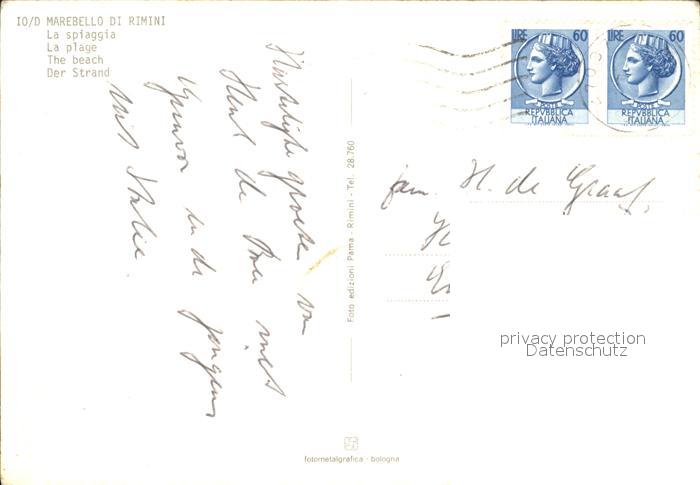 IO/D MAREBELLO DI RIMINI
La spiaggia
La plage
The beach
Der Strand
Hartelijke groeten van
Henk de
en de jongens
uit Italie.
Foto edizioni Pama - Rimini - Tel. 28.760
LIRE 60
POSTE
REPVBBLICA
ITALIANA
LIRE 60
POSTE
REPVBBLICA
ITALIANA
fam. H. de Graaf,
privacy protection
Datenschutz
fotometalgrafica - bologna